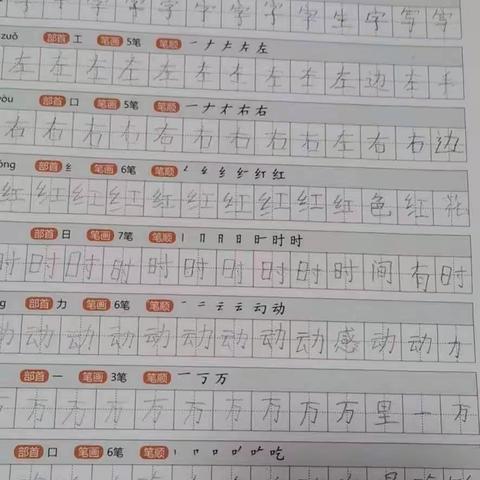 字 字 字 字 字 字 字 字 字 生 字 写 写
zuǒ 部首 工 笔画 5笔 笔顺 一 ナ 𠂇 左 左
左 左 左 左 左 左 左 左 左 左 边 左 手
yòu 部首 口 笔画 5笔 笔顺 一 ナ 才 右 右
右 右 右 右 右 右 右 右 右 左 右 右 边
óng 部首 纟 笔画 6笔 笔顺 纟 纟 红 红
红 红 红 红 红 红 红 红 红 红 色 红 花
部首 日 笔画 7笔 笔顺 丨 冂 月 日 时 时
时 时 时 时 时 时 时 时 时 时 间 有 时
ng 部首 力 笔画 6笔 笔顺 一 二 云 云 动 动
动 动 动 动 动 动 动 动 动 感 动 动 力
部首 一 笔画 3笔 笔顺 一 丆 万
万 万 万 万 万 万 万 万 万 万 里 一 万
部首 口 笔画 6笔 笔顺 丨 口 口 吃